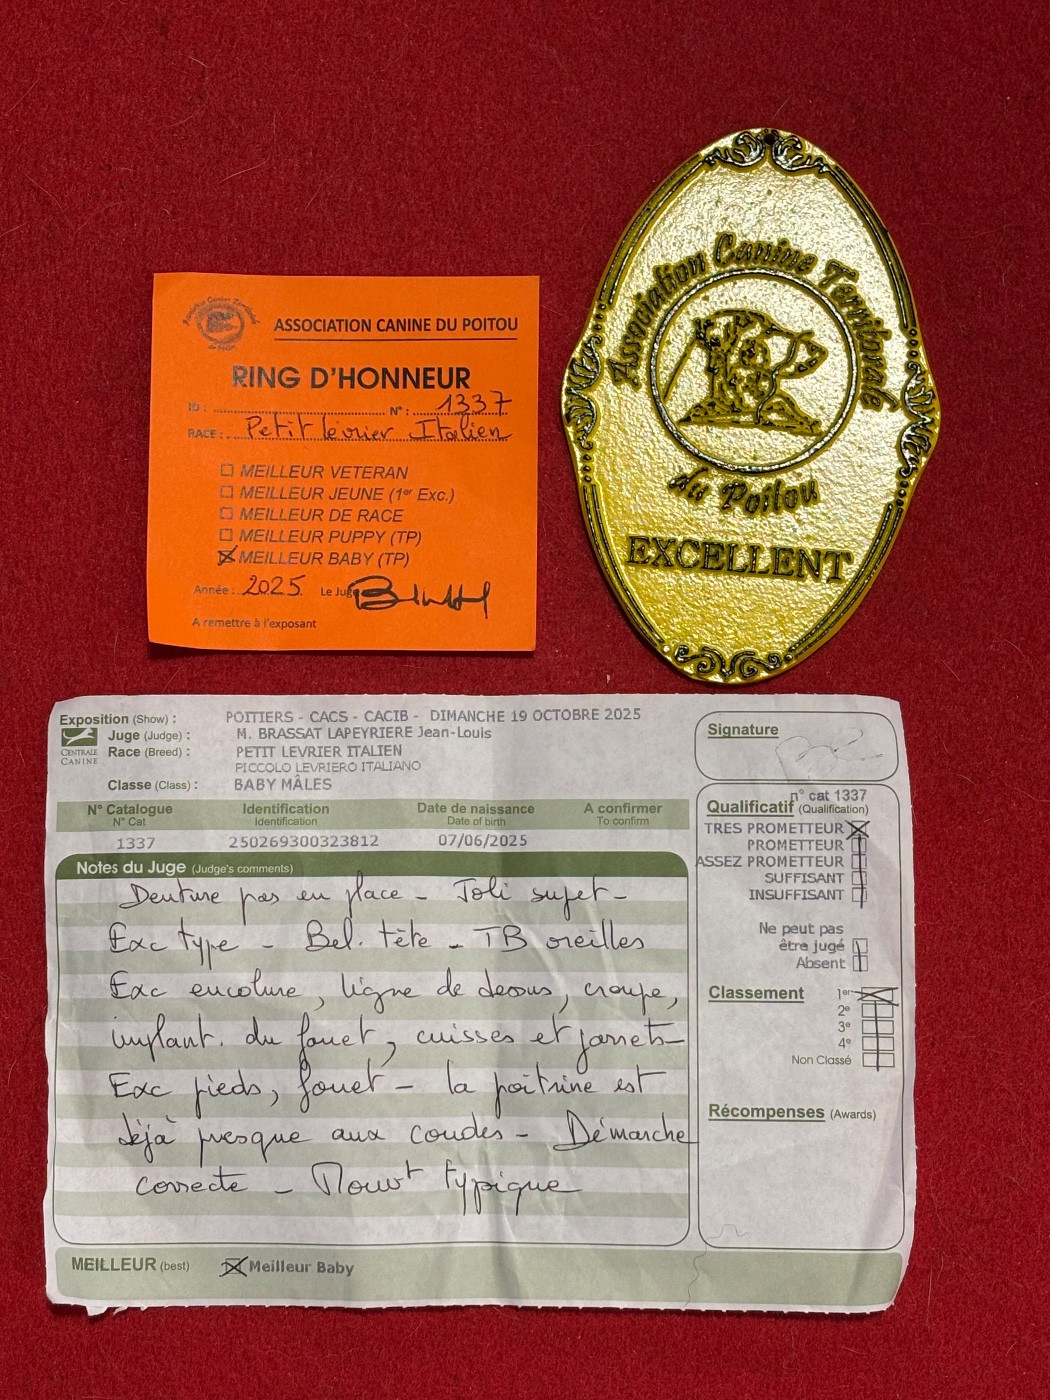 ASSOCIATION CANINE DU POITOU
RING D'HONNEUR
ID : N° : 1337
RACE : Petit lévrier Italien
MEILLEUR VETERAN
MEILLEUR JEUNE (1er Exc.)
MEILLEUR DE RACE
MEILLEUR PUPPY (TP)
MEILLEUR BABY (TP)
Année : 2025 Le Juge
A remettre à l'exposant
Association Canine Territoriale
du Poitou
EXCELLENT
Exposition (Show) : POITIERS - CACS - CACIB - DIMANCHE 19 OCTOBRE 2025
Juge (Judge) : M. BRASSAT LAPEYRIERE Jean-Louis
CENTRALE CANINE
Race (Breed) : PETIT LEVRIER ITALIEN
PICCOLO LEVRIERO ITALIANO
Classe (Class) : BABY MÂLES
N° Catalogue Identification Date de naissance A confirmer
N° Cat Identification Date of birth To confirm
1337 250269300323812 07/06/2025
Notes du Juge (Judge's comments)
Denture pas en place - Joli sujet -
Exc type - Bel. tête - TB oreilles
Exc encolure, ligne de dessus, croupe,
implant. du fouet, cuisses et jarrets -
Exc pieds, fouet - la poitrine est
déjà presque aux coudes - Démarche
correcte - Mouvt typique
MEILLEUR (best) Meilleur Baby
Signature
n° cat 1337
Qualificatif (Qualification)
TRES PROMETTEUR
PROMETTEUR
ASSEZ PROMETTEUR
SUFFISANT
INSUFFISANT
Ne peut pas
être jugé
Absent
Classement 1er
2e
3e
4e
Non Classé
Récompenses (Awards)